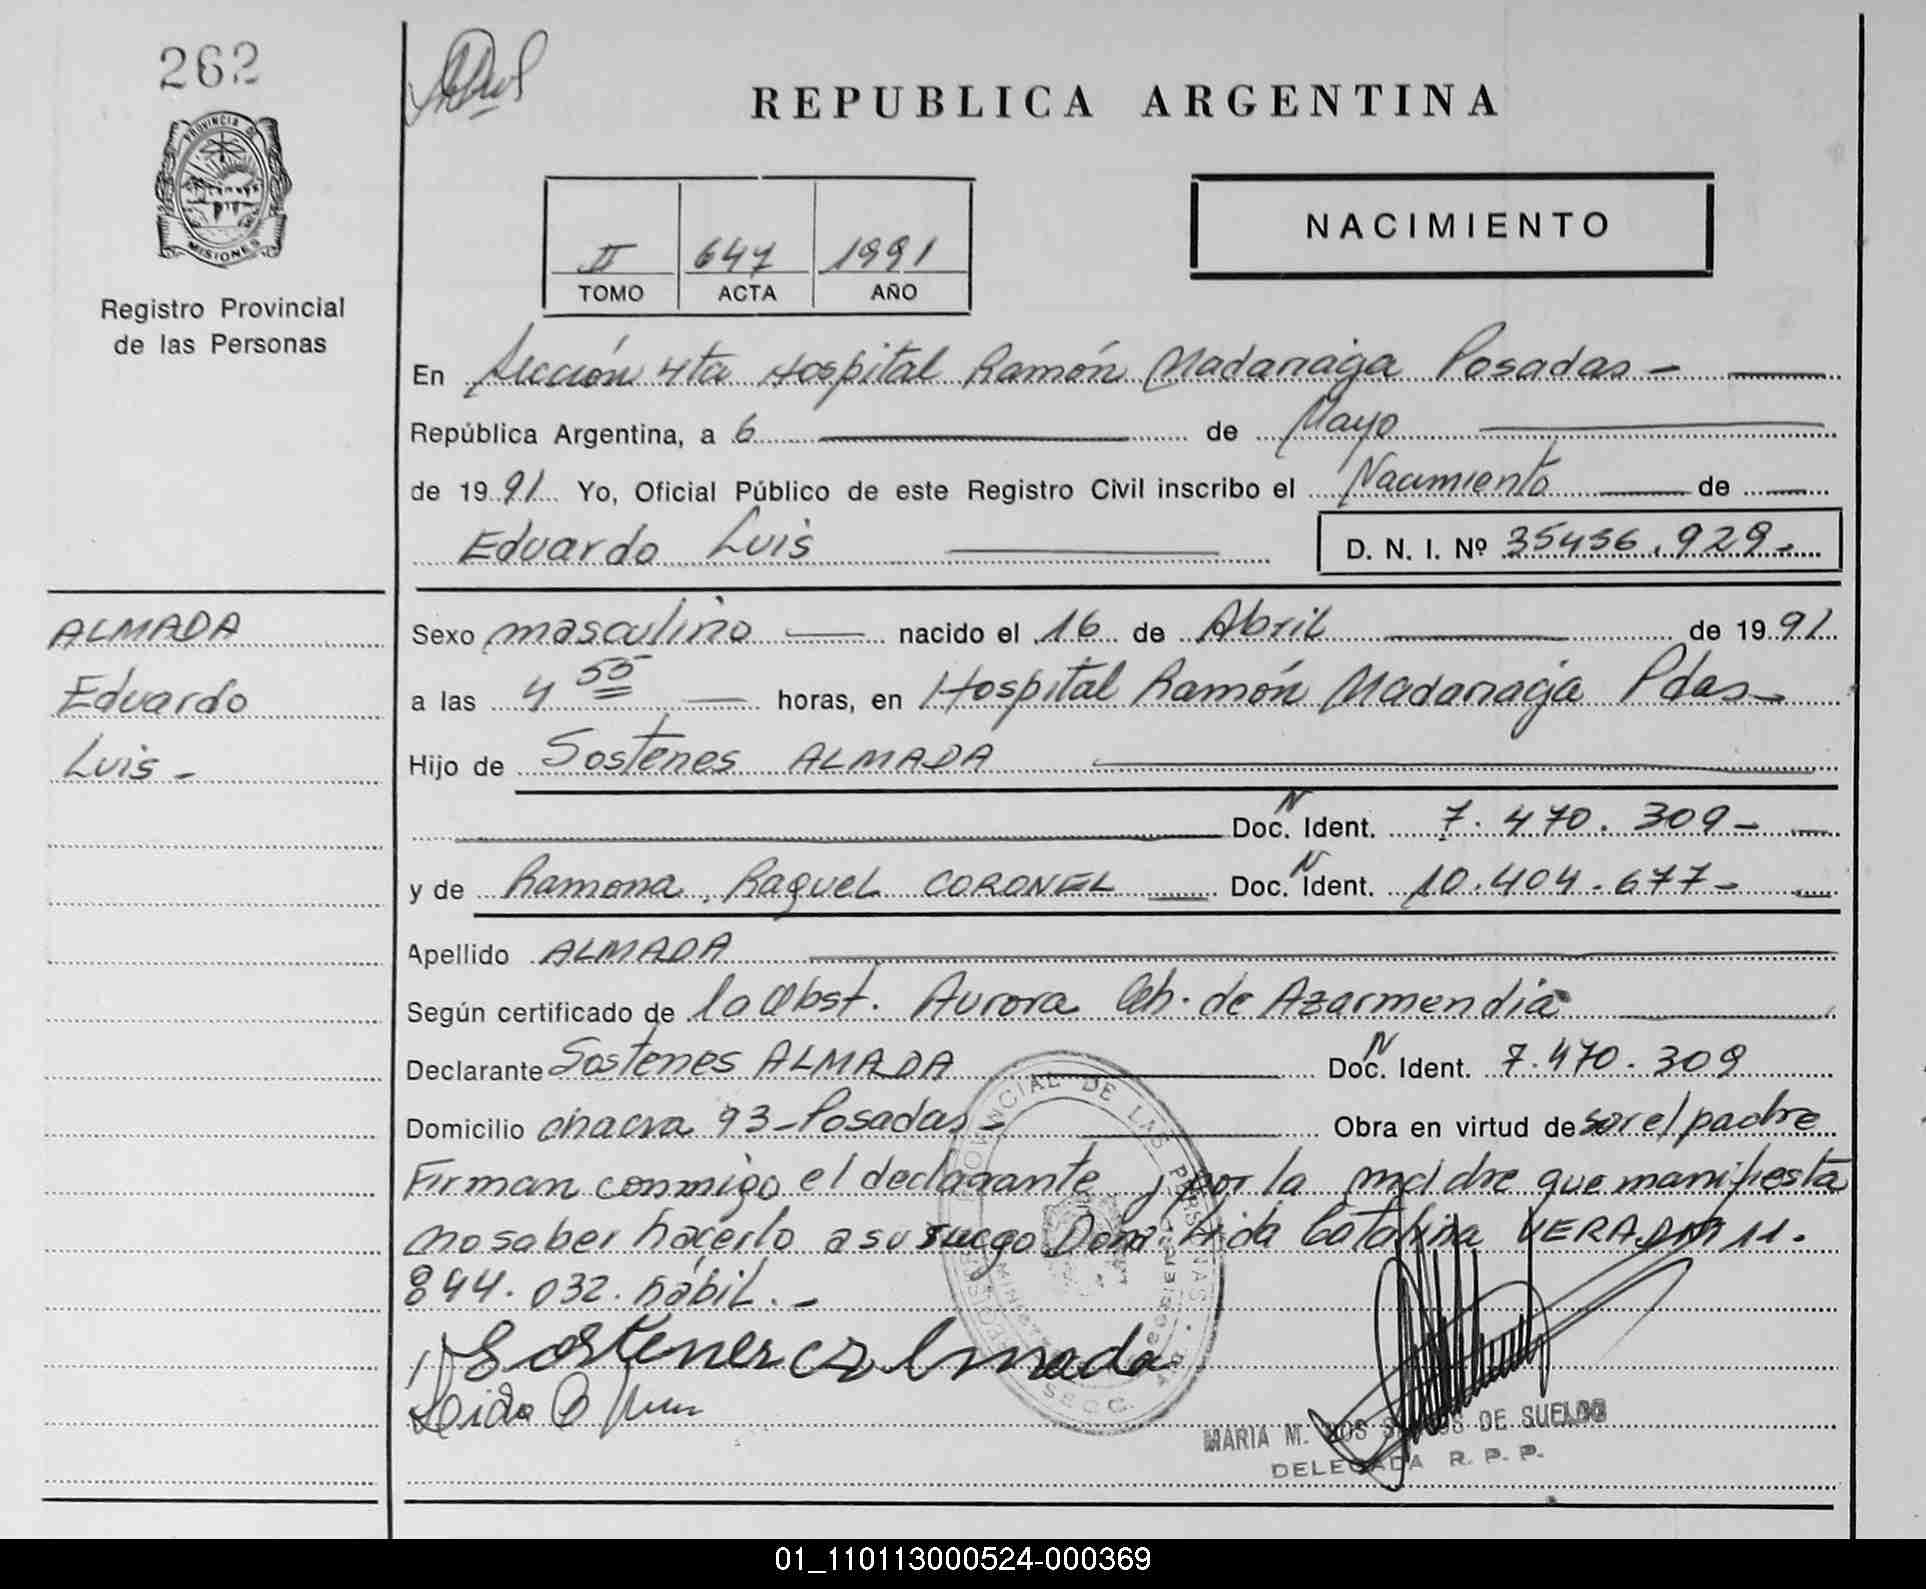 262
PROVINCIA DE
MISIONES
Registro Provincial
de las Personas
REPUBLICA ARGENTINA
NACIMIENTO
II 647 1991
TOMO ACTA AÑO
En Sección 4ta Hospital Ramón Madariaga Posadas -
República Argentina, a 6 de Mayo
de 1991 Yo, Oficial Público de este Registro Civil inscribo el Nacimiento de
Eduardo Luis D. N. I. Nº 35456.929-
ALMADA
Eduardo
Luis -
Sexo masculino nacido el 16 de Abril de 1991
a las 4 55 horas, en Hospital Ramón Madariaga Pdas-
Hijo de Sostenes ALMADA
Doc. N Ident. 7.470.309-
y de Ramona Raquel CORONEL Doc. N Ident. 10.404.677-
Apellido ALMADA
Según certificado de la Obst. Aurora de Azarmendia
Declarante Sostenes ALMADA Doc. N Ident. 7.470.309
Domicilio chacra 93-Posadas- Obra en virtud de ser el padre
Firman conmigo el declarante y por la madre que manifiesta
no saber hacerlo a su ruego Doña Aida Catalina VERA DNI 11.
894.032. hábil. -
Sostenes Almada
MARIA M. DOS SANTOS DE SUELDO
DELEGADA R. P. P.
01_110113000524-000369